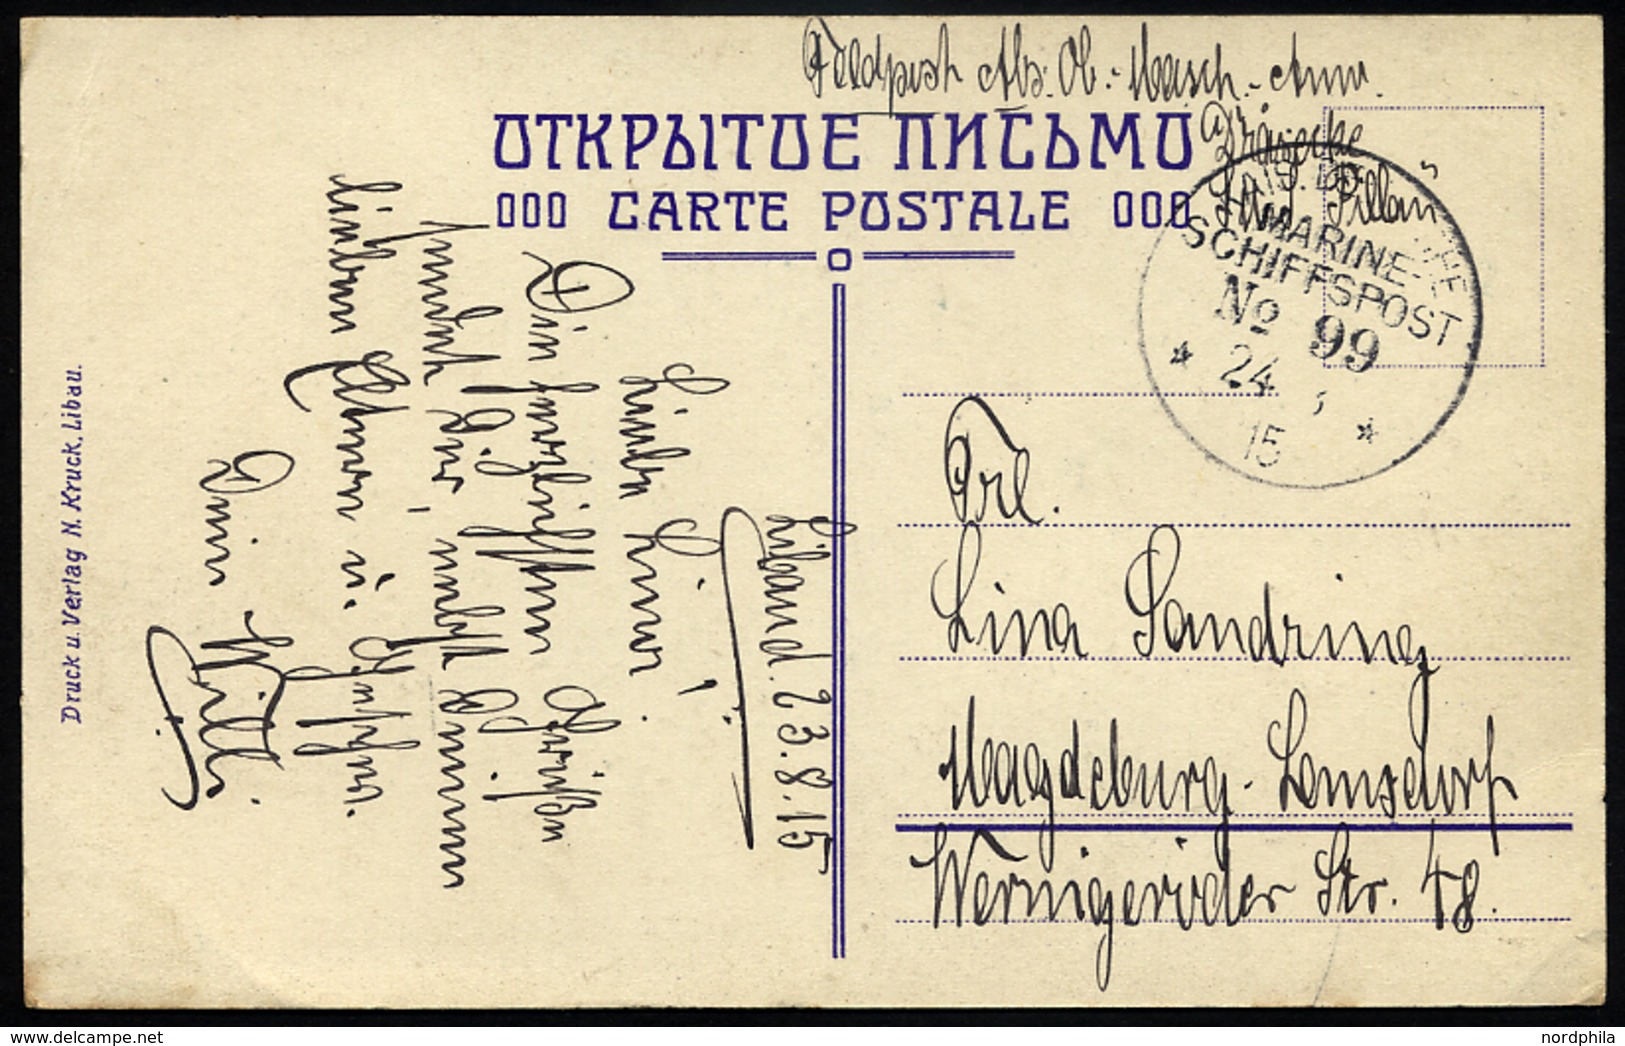 Feldpost Abs. Ob.-Masch.-Anw.
Dräsecke
S.M.S. Pillau
ОТКРЫТОЕ ПИСЬМО
000 CARTE POSTALE 000
KAIS. DEUTSCHE
MARINE-
SCHIFFSPOST
No 99
* 24 8 *
15
Frl.
Lina Sandring
Magdeburg-Lemsdorf
Wernigeröder Str. 48.
Libau d. 23.8.15
Liebe Lina!
Die herzlichsten Grüße
sendet Dir, nebst Deinen
lieben Eltern u. Geschw.
Dein Willi
Druck u. Verlag N. Kruck, Libau.
nordphila